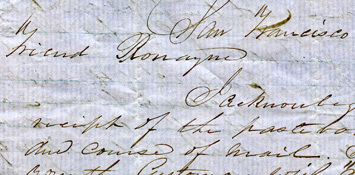 San Francisco
Friend Ronayne
I acknowleg
recipt of the paste bo
due course of mail.